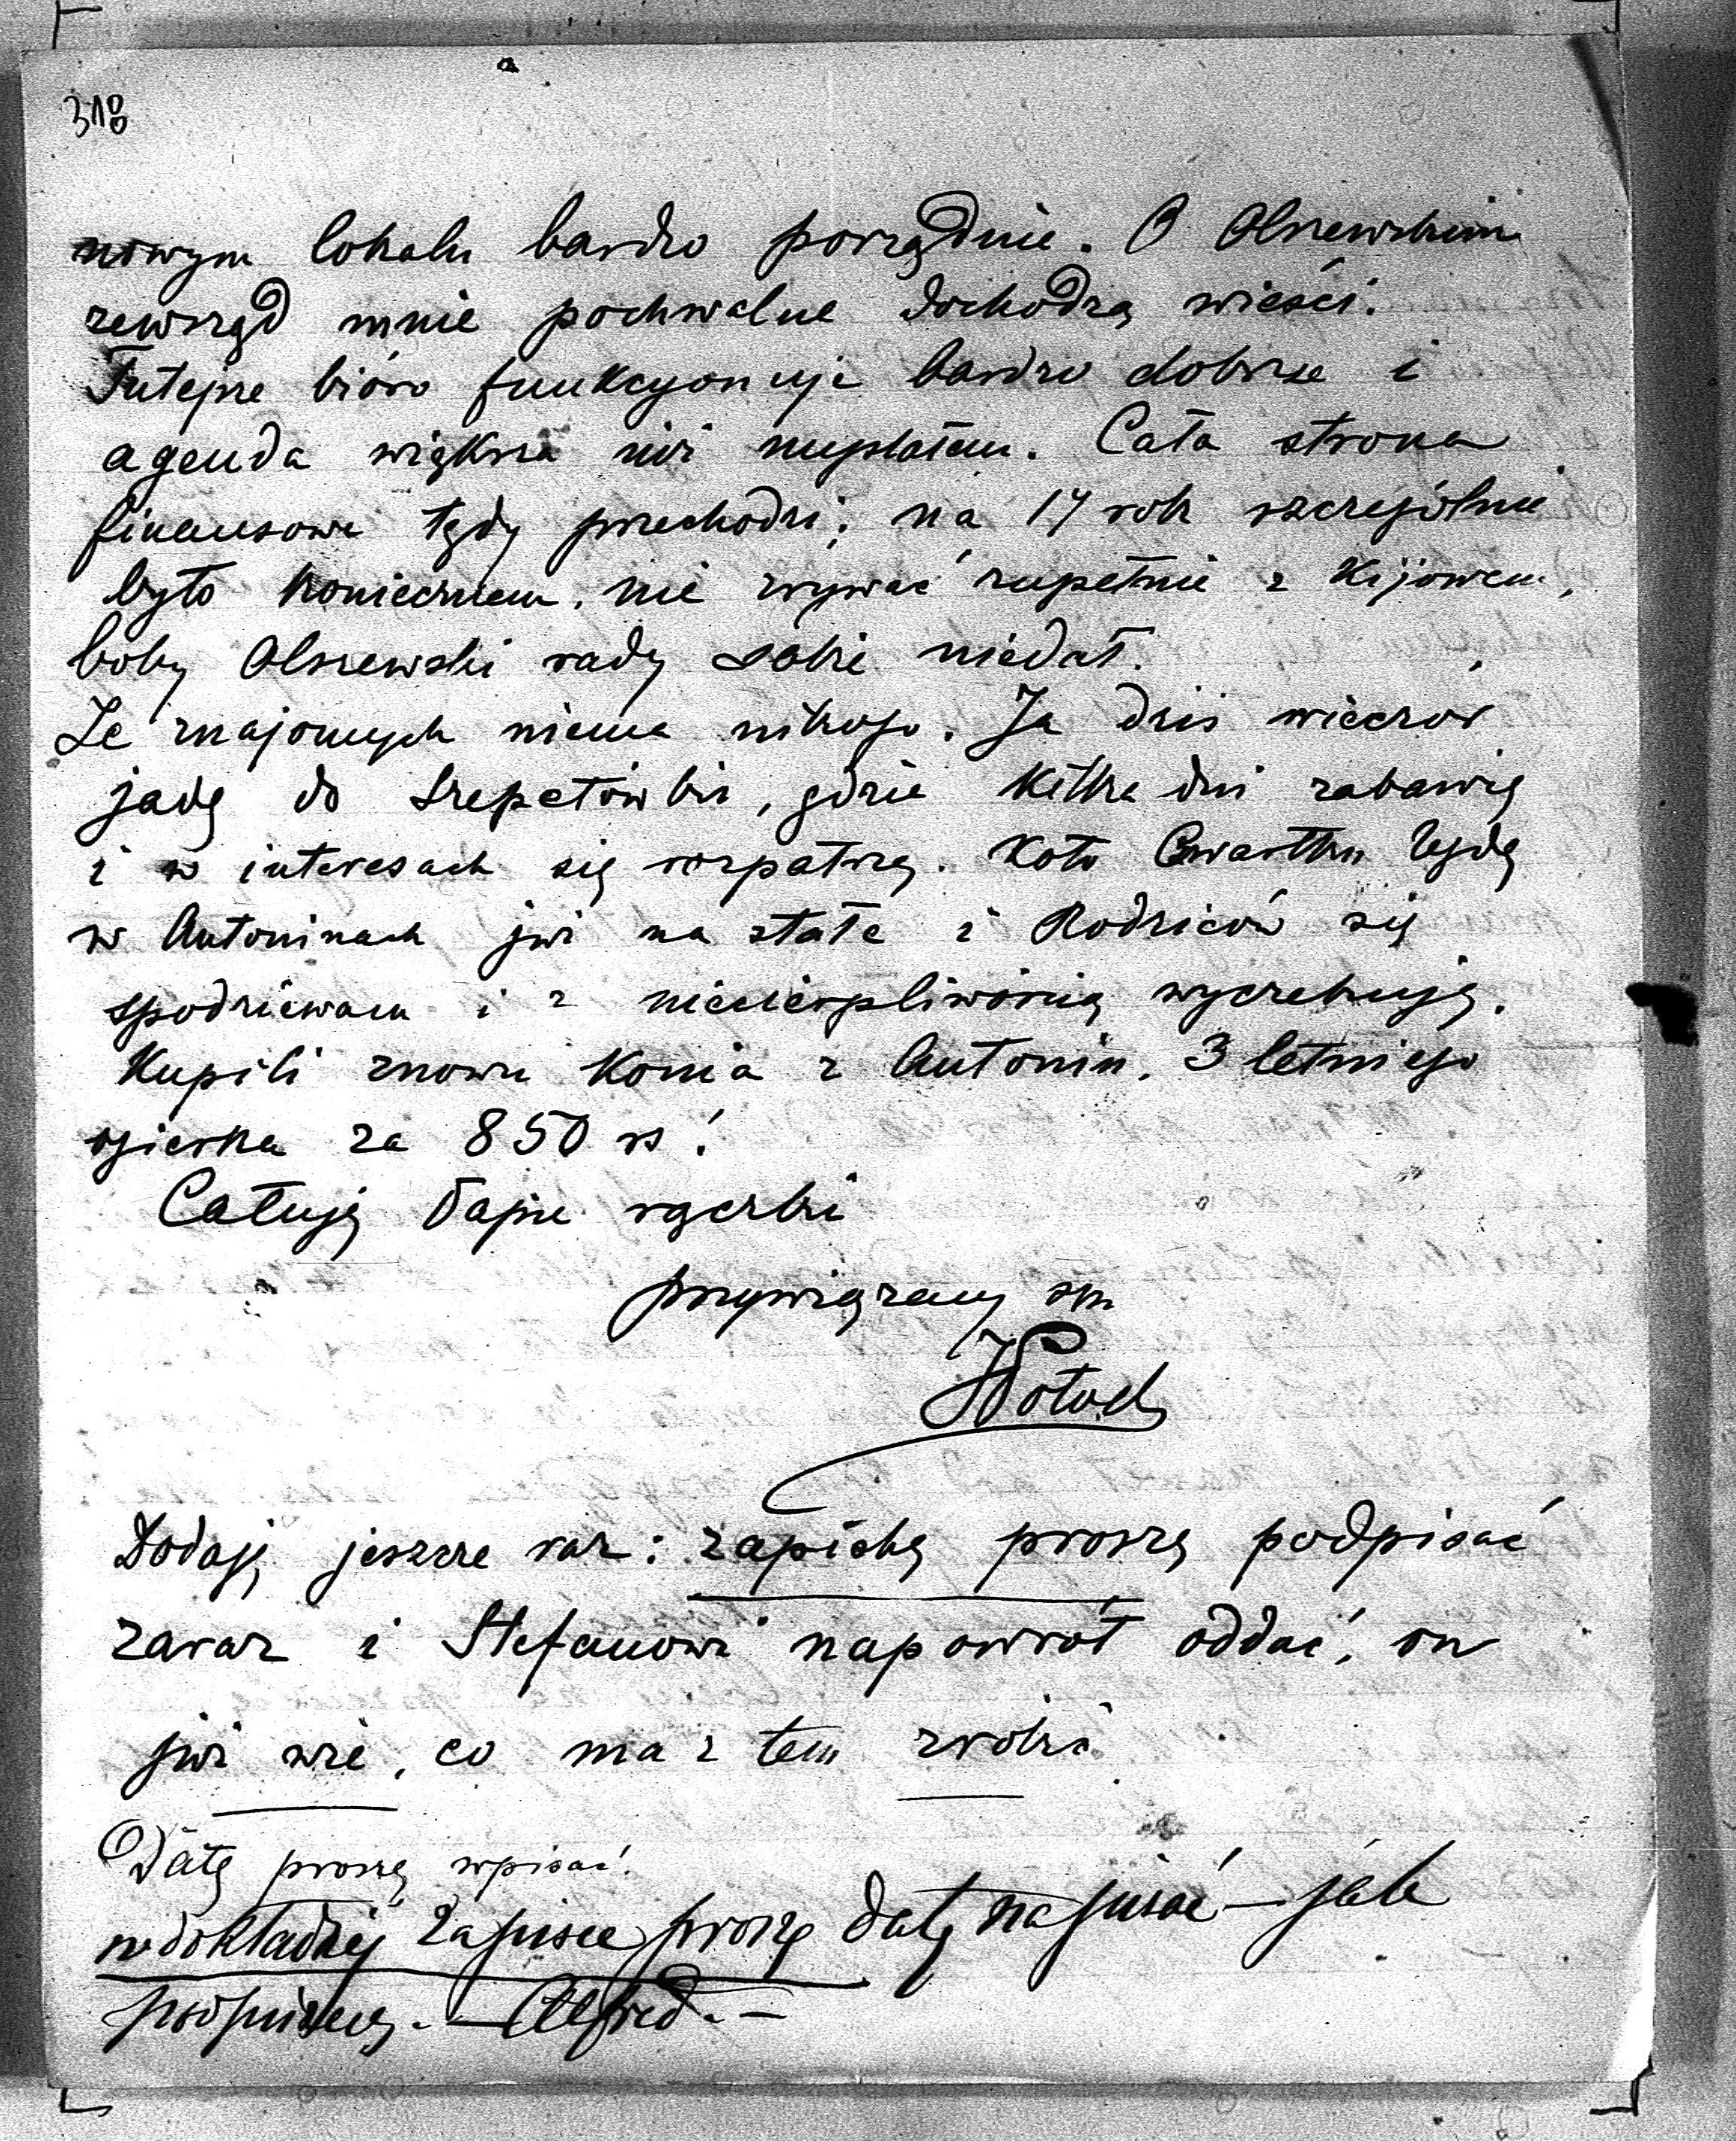 318
nowym lokalu bardzo porządnie. O Olszewskim
zewsząd mnie pochwalne dochodzą wieści.
Tutejsze bióro funkcyonuje bardzo dobrze i
agenda większa niż myślałem. Cała strona
finansowa tędy przechodzi; na 17 rok szczególnie
było koniecznem, nie zrywać zupełnie z Kijowem,
boby Olszewski rady sobie niedał.
Ze znajomych niema nikogo. Ja dziś wieczór
jadę do Szepetówki, gdzie kilka dni zabawię
i w interesach się rozpatrzę. Koło Czwartku będę
w Antoninach już na stałe i Rodziców się
spodziewam i z niecierpliwością wyczekuję.
Kupili znowu konia z Antonin. 3 letniego
ogierka za 850 rs!
Całuję Papie rączki
przywiązany syn
JPotocki
Dodaję jeszcze raz: zapiskę proszę podpisać
zaraz i Stefanowi napowrót oddać, on
już wie, co ma z tem zrobić.
Datę proszę wpisać.
w dokładnej zapisce proszę datę napisać – jak
podpiszesz. – Alfred. –